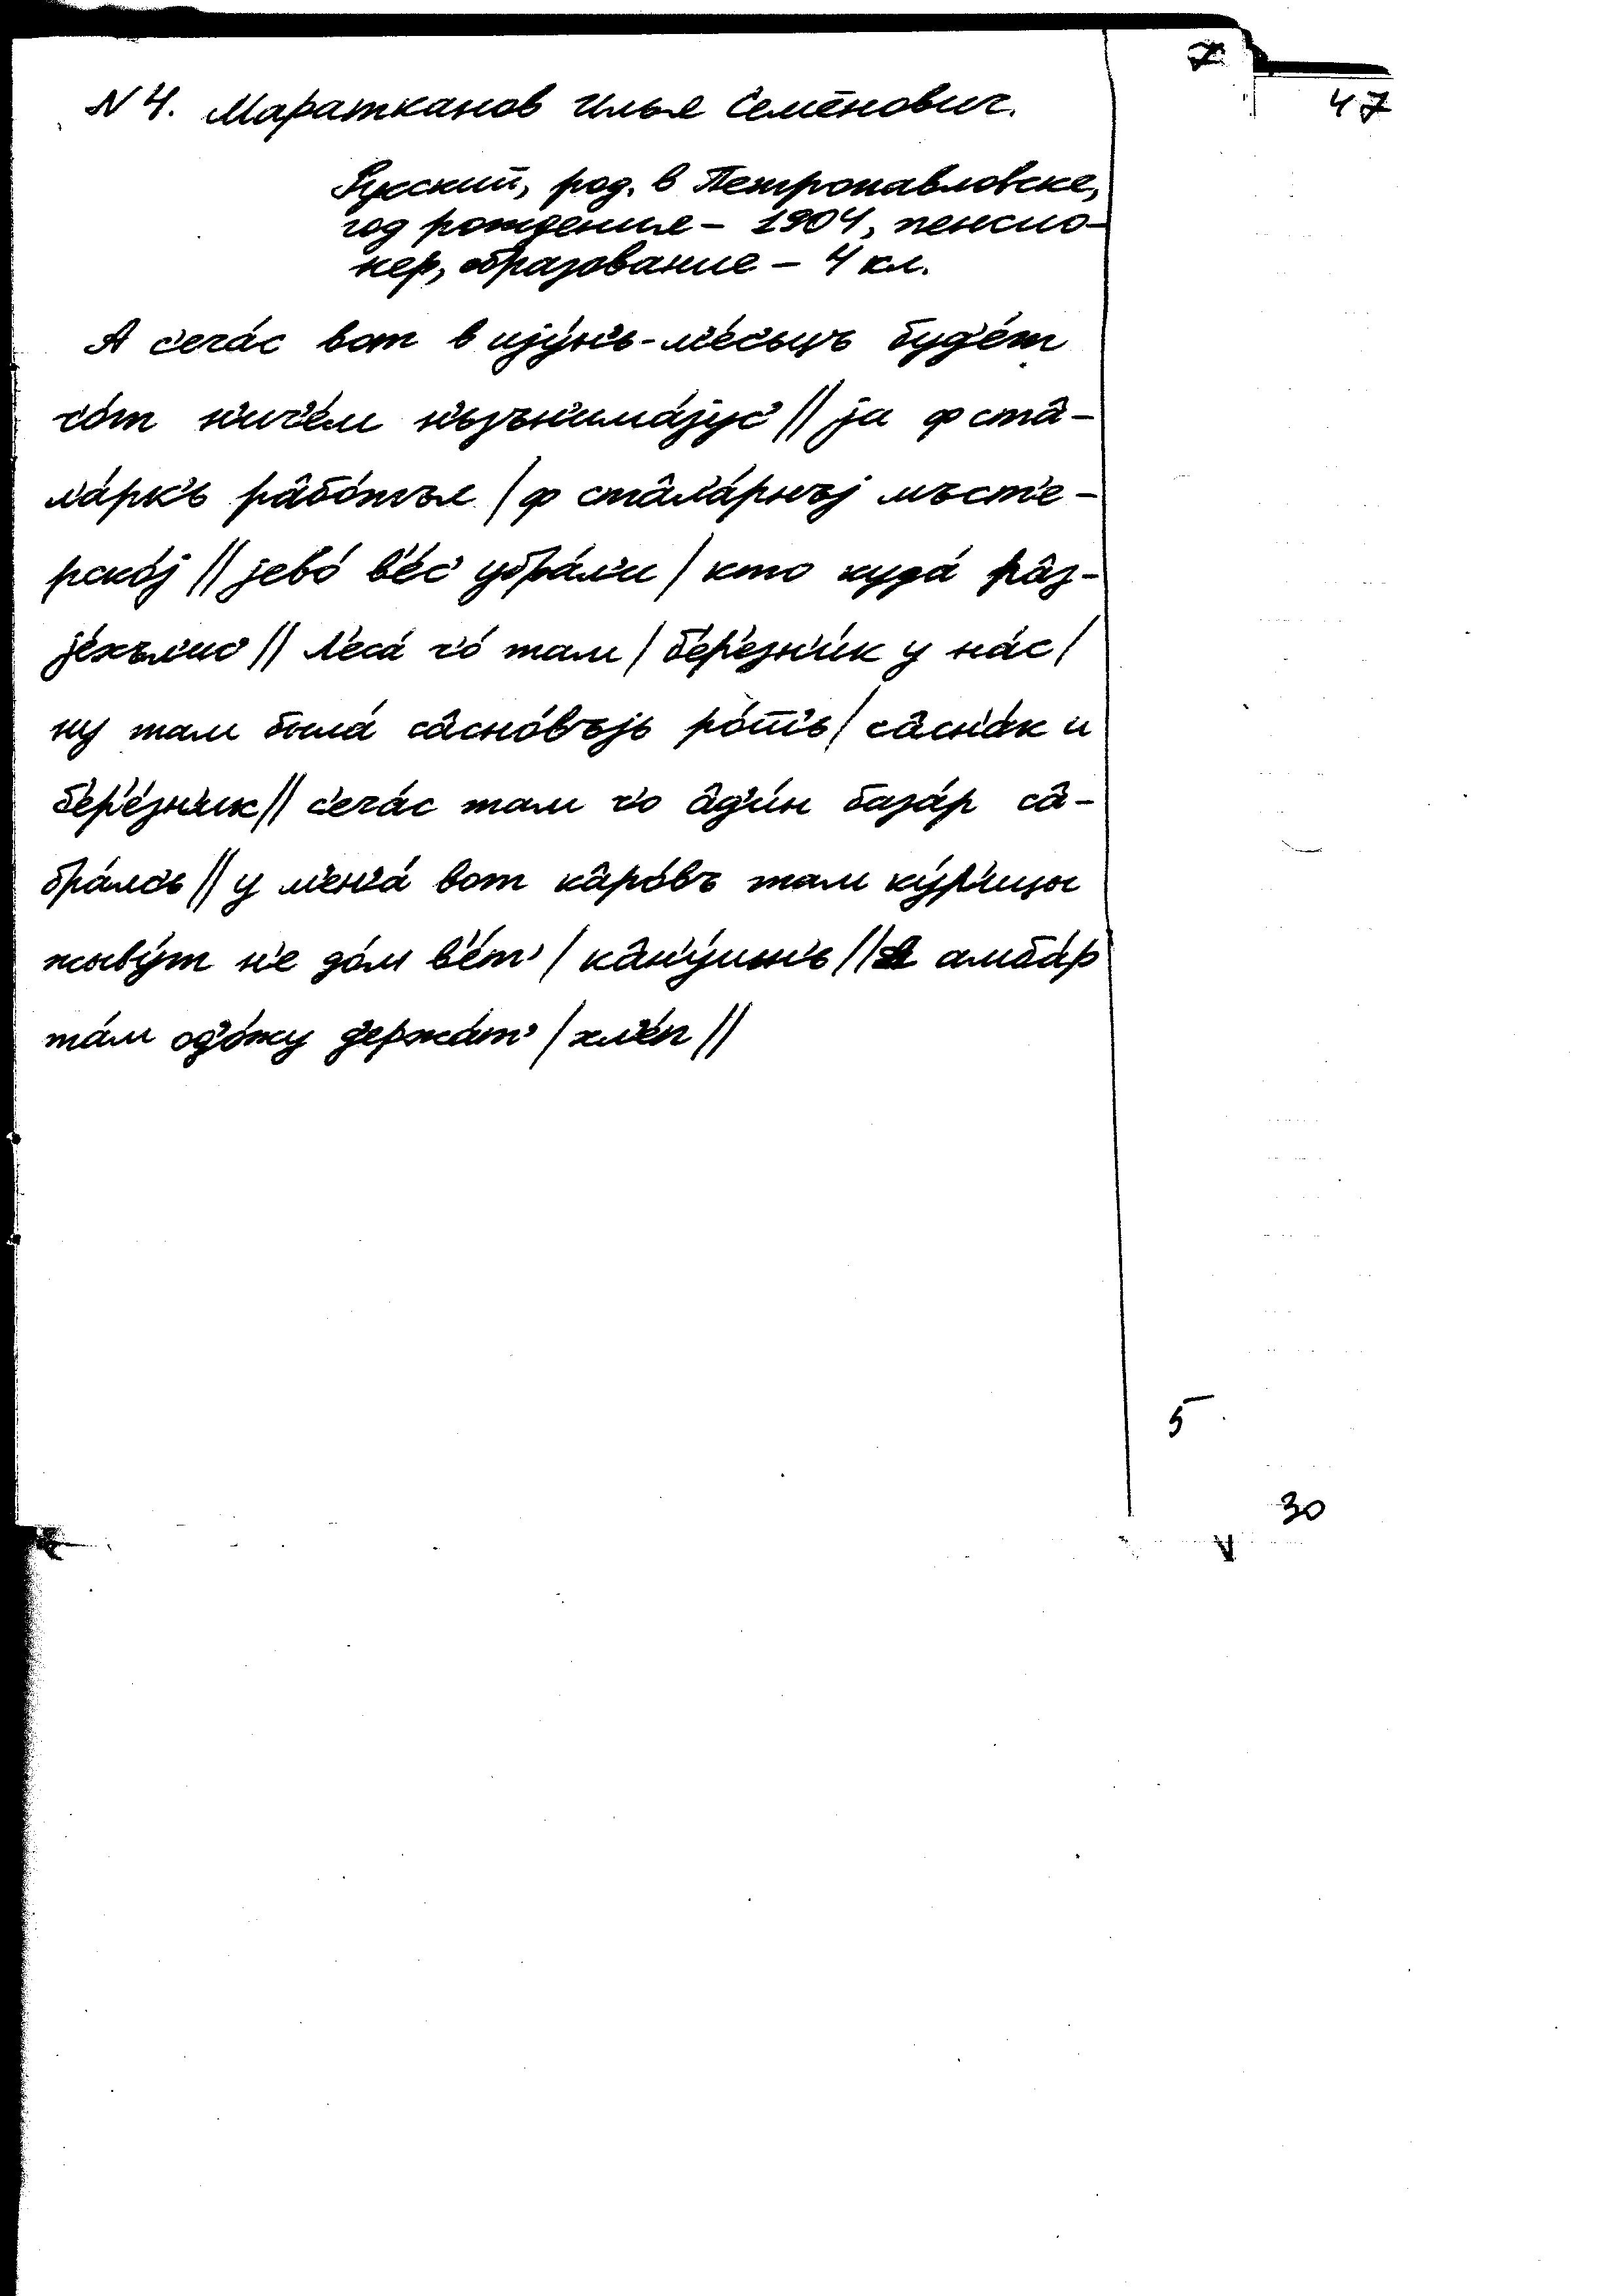 7
47
N 4. Маратканов Илья Семёнович.
Русский, род. в Петропавловске,
год рождения – 1904, пенсио-
нер, образование – 4 кл.
А с'еча́с вот в ијӯ́н'ь-м'е́с'ьцъ буд'е́т
го́т н'ич'е́м н'ьзън'има́јус' // ја ф ста̂-
л'а́рк'ь ра̂бо́тъл / ф ста̂л'а́рнъј мъст'е-
рско́ј // јево́ в'е́с' убра́л'и / кто куда́ ра̂з-
је́хъл'ис' // л'еса́ ч'о́ там / б'ер'езн'и́к у на́с /
ну там была́ са̂сно́въјь ро́ш'ь / са̂сн'а́к и
б'ер'е́зн'ик // с'еча́с там ч'о а̂д'и́н база́р са̂-
бра́лс'ь // у м'ен'а́ вот ка̂ро́въ там ку́р'ицы
жыву́т н'е до́м в'е́т' / ка̂н'у́шн'ь // амба́р
та́м од'о́жу д'ержа́т' / хл'е́п //
5
30